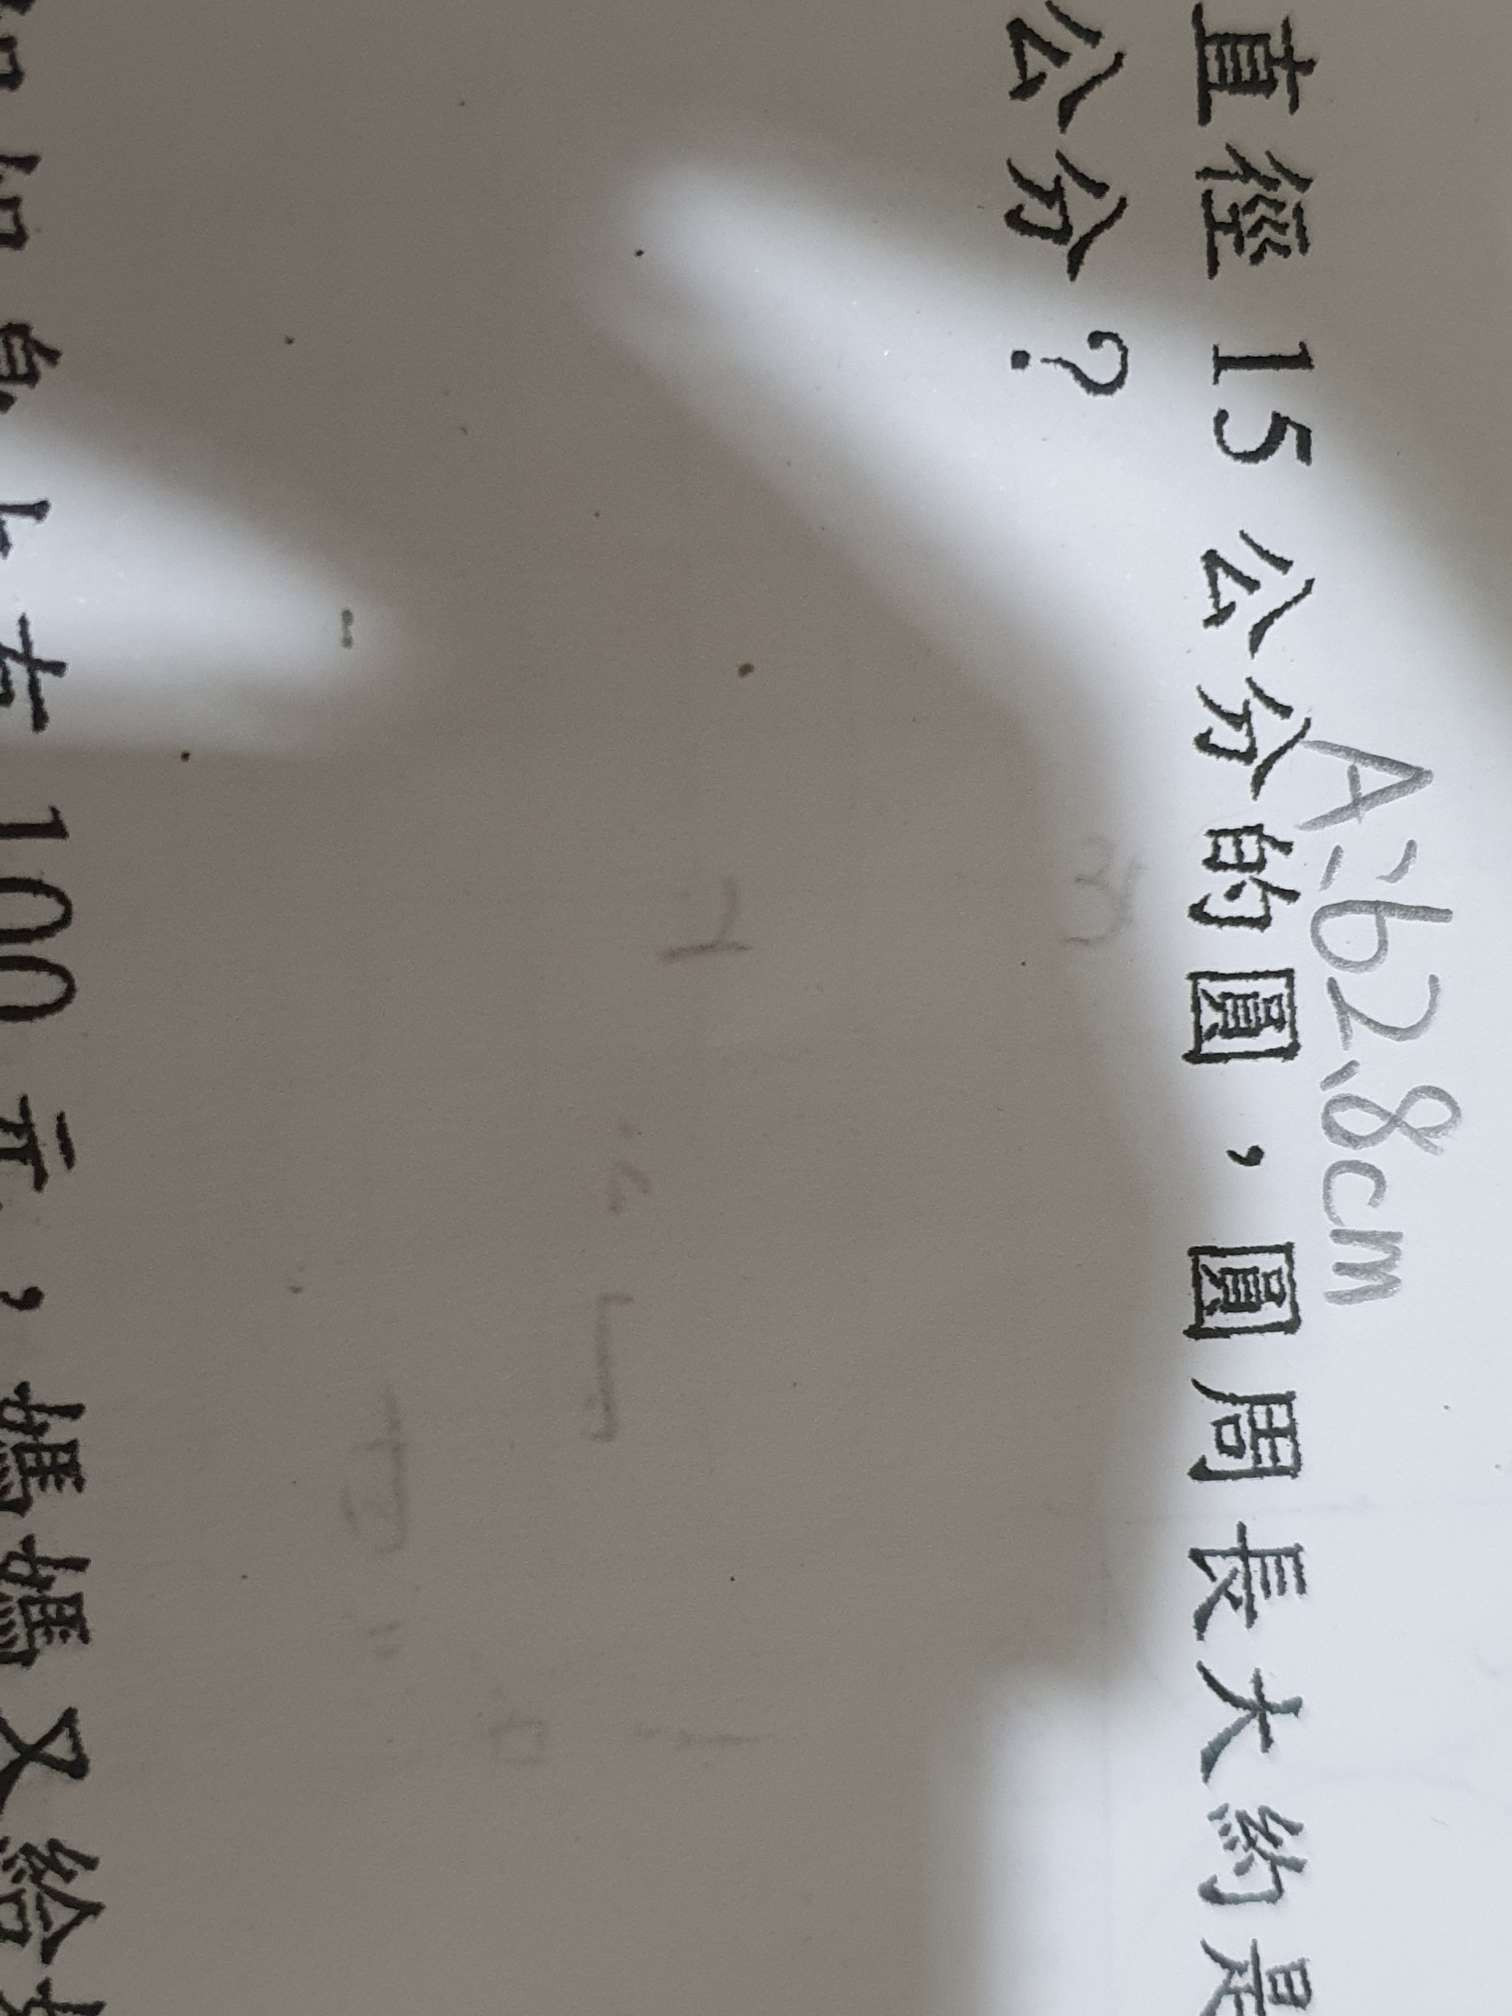 A:62.8cm
直徑 15 公分的圓，圓周長大約是
公分？
100 元，媽媽又給